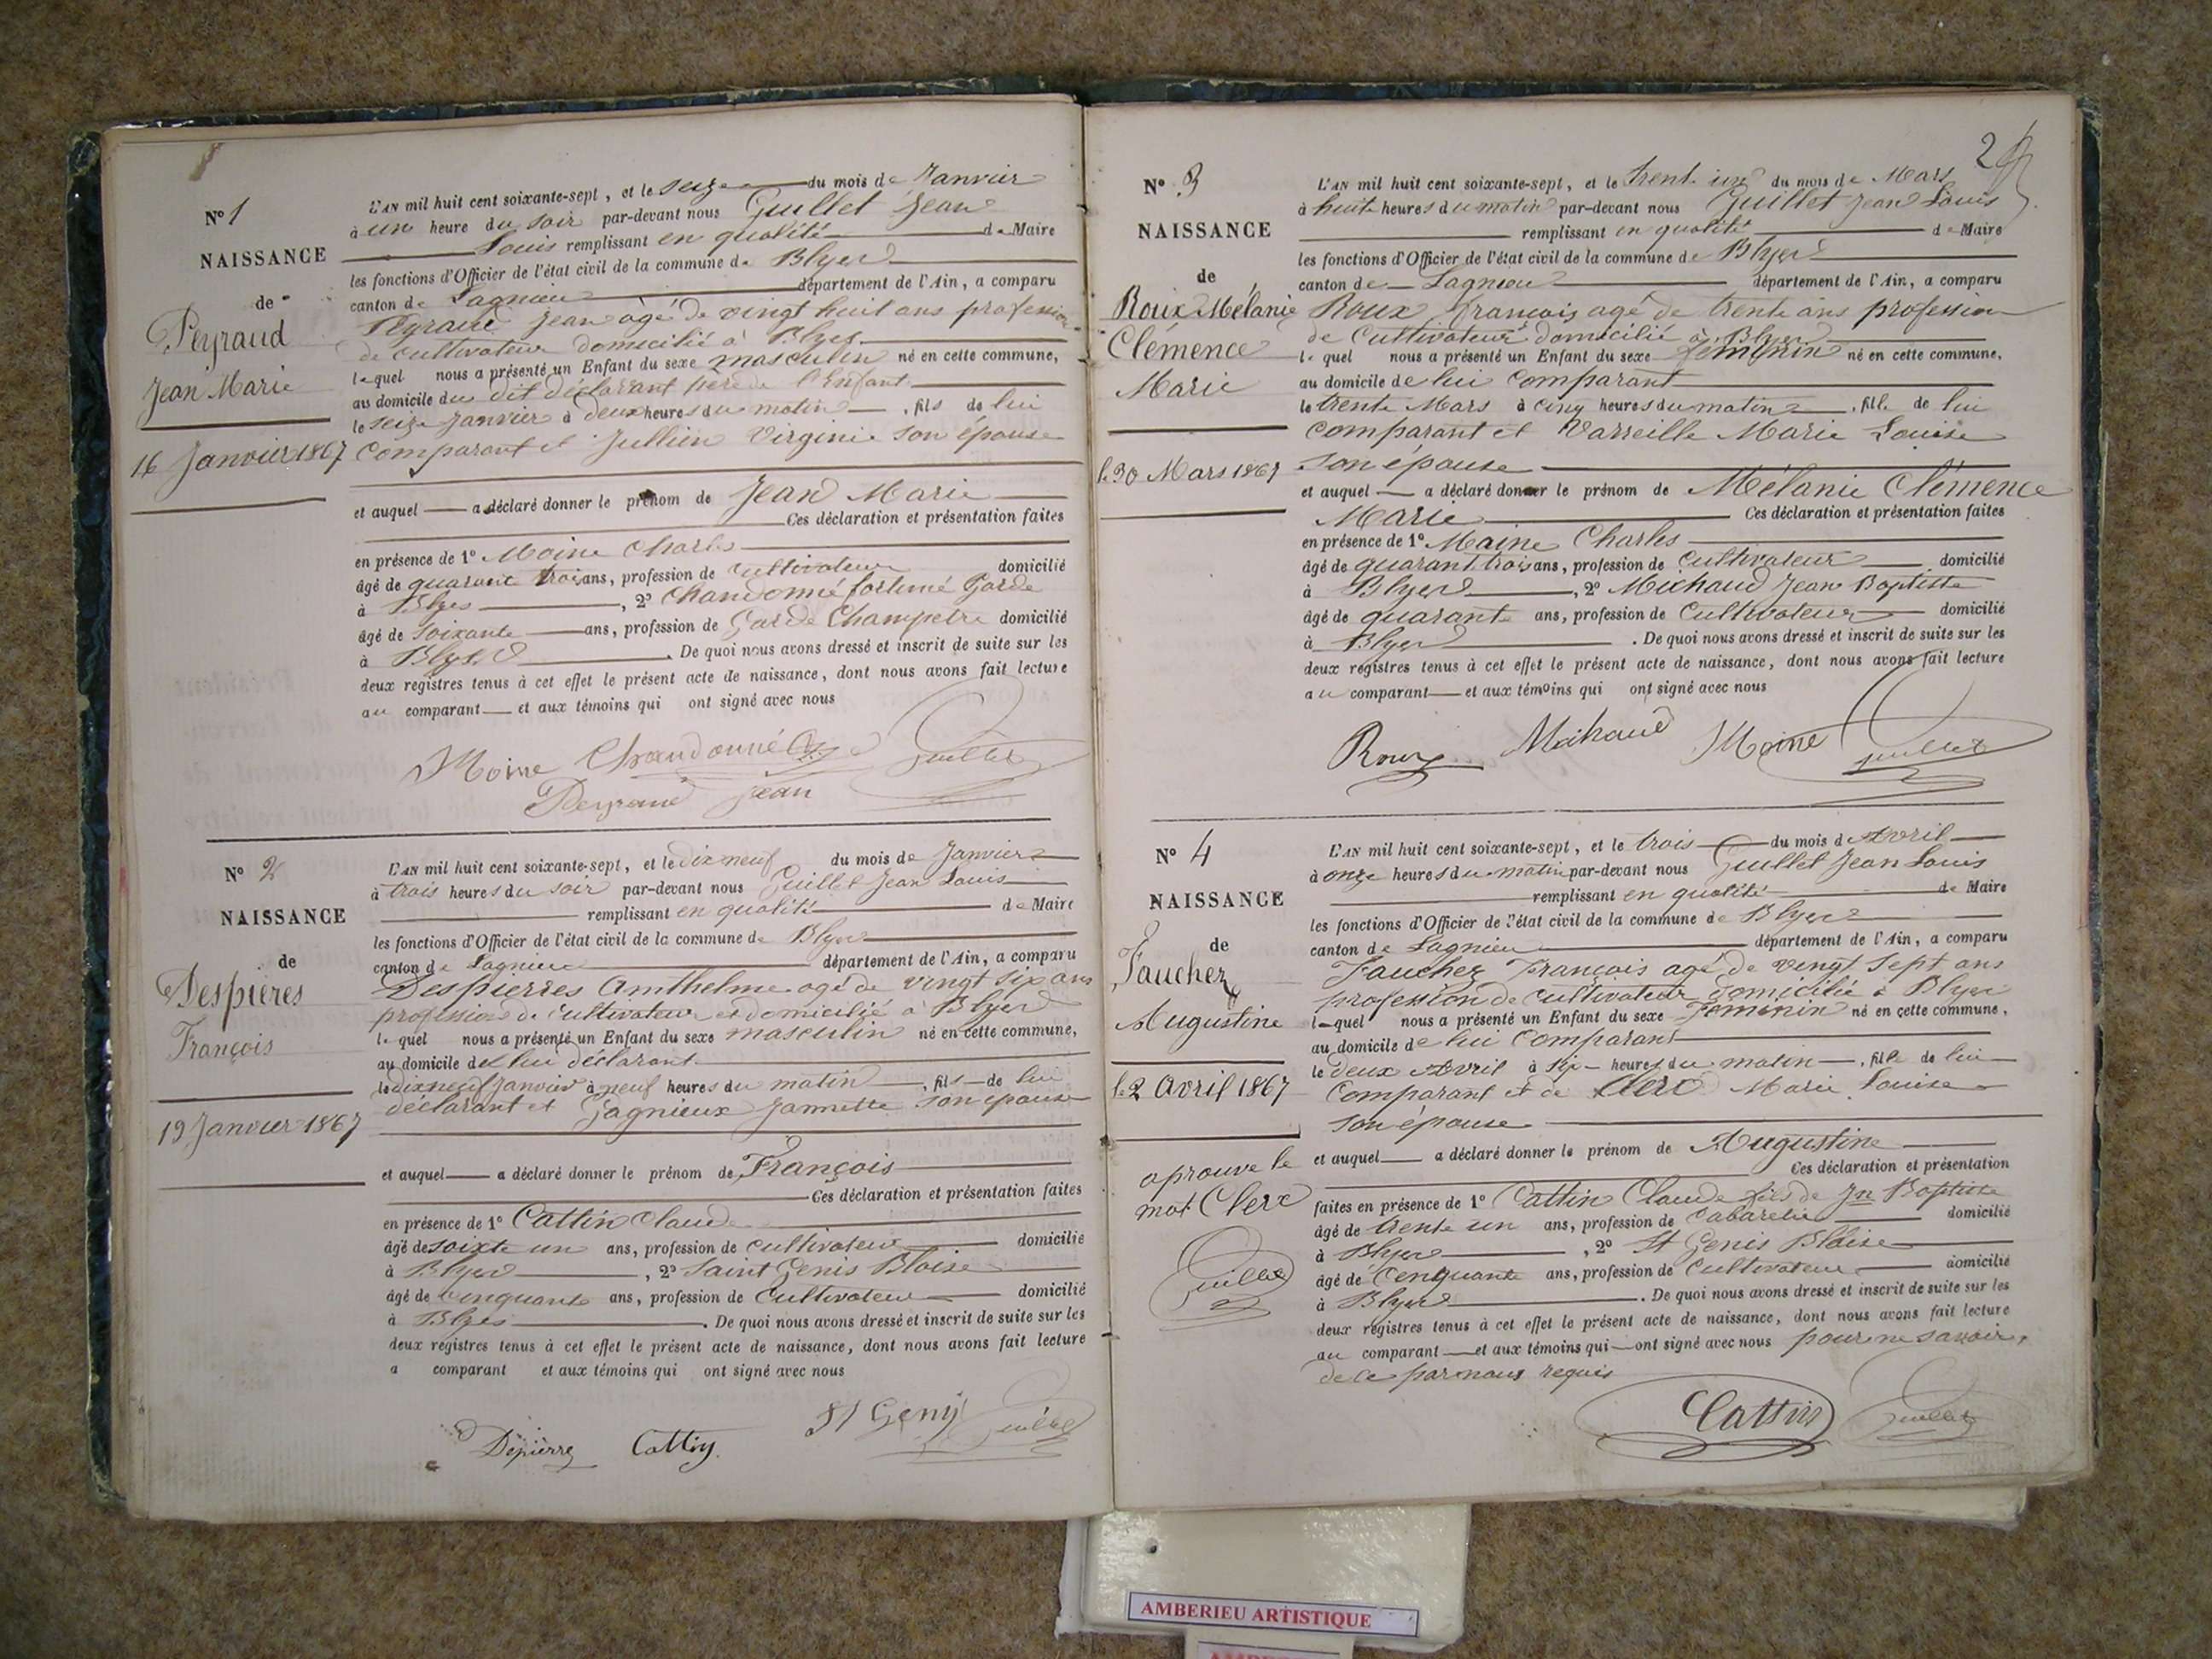 N° 1
NAISSANCE
de
Peyraud
Jean Marie
16 Janvier 1867
L'AN mil huit cent soixante-sept, et le seize du mois de Janvier
à un heure du soir par-devant nous Guillet Jean
Louis remplissant en qualité de Maire
les fonctions d'Officier de l'état civil de la commune de Blyes
canton de Lagnieu département de l'Ain, a comparu
Peyraud Jean agé de vingt huit ans profession
de cultivateur domicilié à Blyes
lequel nous a présenté un Enfant du sexe masculin né en cette commune,
au domicile du dit déclarant père de l'Enfant
le seize Janvier à deux heures du matin, fils de lui
Comparant et Jullien Virginie son épouse
et auquel a déclaré donner le prénom de Jean Marie
Ces déclaration et présentation faites
en présence de 1° Moine Charles
âgé de quarante trois ans, profession de Cultivateur domicilié
à Blyes, 2° Chandonné fortuné Garde
âgé de soixante ans, profession de Garde Champetre domicilié
à Blyes. De quoi nous avons dressé et inscrit de suite sur les
deux registres tenus à cet effet le présent acte de naissance, dont nous avons fait lecture
au comparant et aux témoins qui ont signé avec nous
Moine Chandonné Guillet
Peyraud Jean
N° 2
NAISSANCE
de
Despières
François
19 Janvier 1867
L'AN mil huit cent soixante-sept, et le dix neuf du mois de Janvier
à trois heures du soir par-devant nous Guillet Jean Louis
remplissant en qualité de Maire
les fonctions d'Officier de l'état civil de la commune de Blyes
canton de Lagnieu département de l'Ain, a comparu
Despierres Anthelme agé de vingt six ans
profession de cultivateur et domicilié à Blyes
lequel nous a présenté un Enfant du sexe masculin né en cette commune,
au domicile de lui déclarant
le dix neuf Janvier à neuf heures du matin, fils de lui
déclarant et Gagnieux Jannette son épouse
et auquel a déclaré donner le prénom de François
Ces déclaration et présentation faites
en présence de 1° Cattin Claude
âgé de soixte un ans, profession de cultivateur domicilié
à Blyes, 2° Saint Genis Blaise
âgé de Cinquante ans, profession de Cultivateur domicilié
à Blyes. De quoi nous avons dressé et inscrit de suite sur les
deux registres tenus à cet effet le présent acte de naissance, dont nous avons fait lecture
a comparant et aux témoins qui ont signé avec nous
Dépierre Cattin St Geny Guillet
2
N° 3
NAISSANCE
de
Roux Mélanie
Clémence
Marie
le 30 Mars 1867
L'AN mil huit cent soixante-sept, et le trent un du mois de Mars
à huit heures du matin par-devant nous Guillet Jean Louis
remplissant en qualité de Maire
les fonctions d'Officier de l'état civil de la commune de Blyes
canton de Lagnieu département de l'Ain, a comparu
Roux François agé de trente ans profession
de Cultivateur domicilié à Blyes
lequel nous a présenté un Enfant du sexe féminin né en cette commune,
au domicile de lui Comparant
le trente Mars à cinq heures du matin, fille de lui
comparant et Varseille Marie Louise
son épouse
et auquel a déclaré donner le prénom de Mélanie Clémence
Marie Ces déclaration et présentation faites
en présence de 1° Maine Charles
âgé de quarant trois ans, profession de Cultivateur domicilié
à Blyes, 2° Michaud Jean Baptiste
âgé de quarante ans, profession de Cultivateur domicilié
à Blyes. De quoi nous avons dressé et inscrit de suite sur les
deux registres tenus à cet effet le présent acte de naissance, dont nous avons fait lecture
au comparant et aux témoins qui ont signé avec nous
Roux Michaud Moine Guillet
N° 4
NAISSANCE
de
Faucher
Augustine
le 2 Avril 1867
aprouve le
mot Clerc
Guillet
L'AN mil huit cent soixante-sept, et le trois du mois de Avril
à onze heures du matin par-devant nous Guillet Jean Louis
remplissant en qualité de Maire
les fonctions d'Officier de l'état civil de la commune de Blyes
canton de Lagnieu département de l'Ain, a comparu
Faucher François agé de vingt sept ans
profession de cultivateur domicilié à Blyes
lequel nous a présenté un Enfant du sexe féminin né en cette commune,
au domicile de lui Comparant
le deux Avril à six heures du matin, fille de lui
Comparant et de Clerc Marie Louise
son épouse
et auquel a déclaré donner le prénom de Augustine
Ces déclaration et présentation
faites en présence de 1° Cattin Claude fils de Jn Baptiste
âgé de trente un ans, profession de Cabaretier domicilié
à Blyes, 2° St Genis Blaise
âgé de Cenquante ans, profession de Cultivateur domicilié
à Blyes. De quoi nous avons dressé et inscrit de suite sur les
deux registres tenus à cet effet le présent acte de naissance, dont nous avons fait lecture
au comparant et aux témoins qui ont signé avec nous pour ne savoir,
de ce par nous requis
Cattin Guillet
AMBERIEU ARTISTIQUE